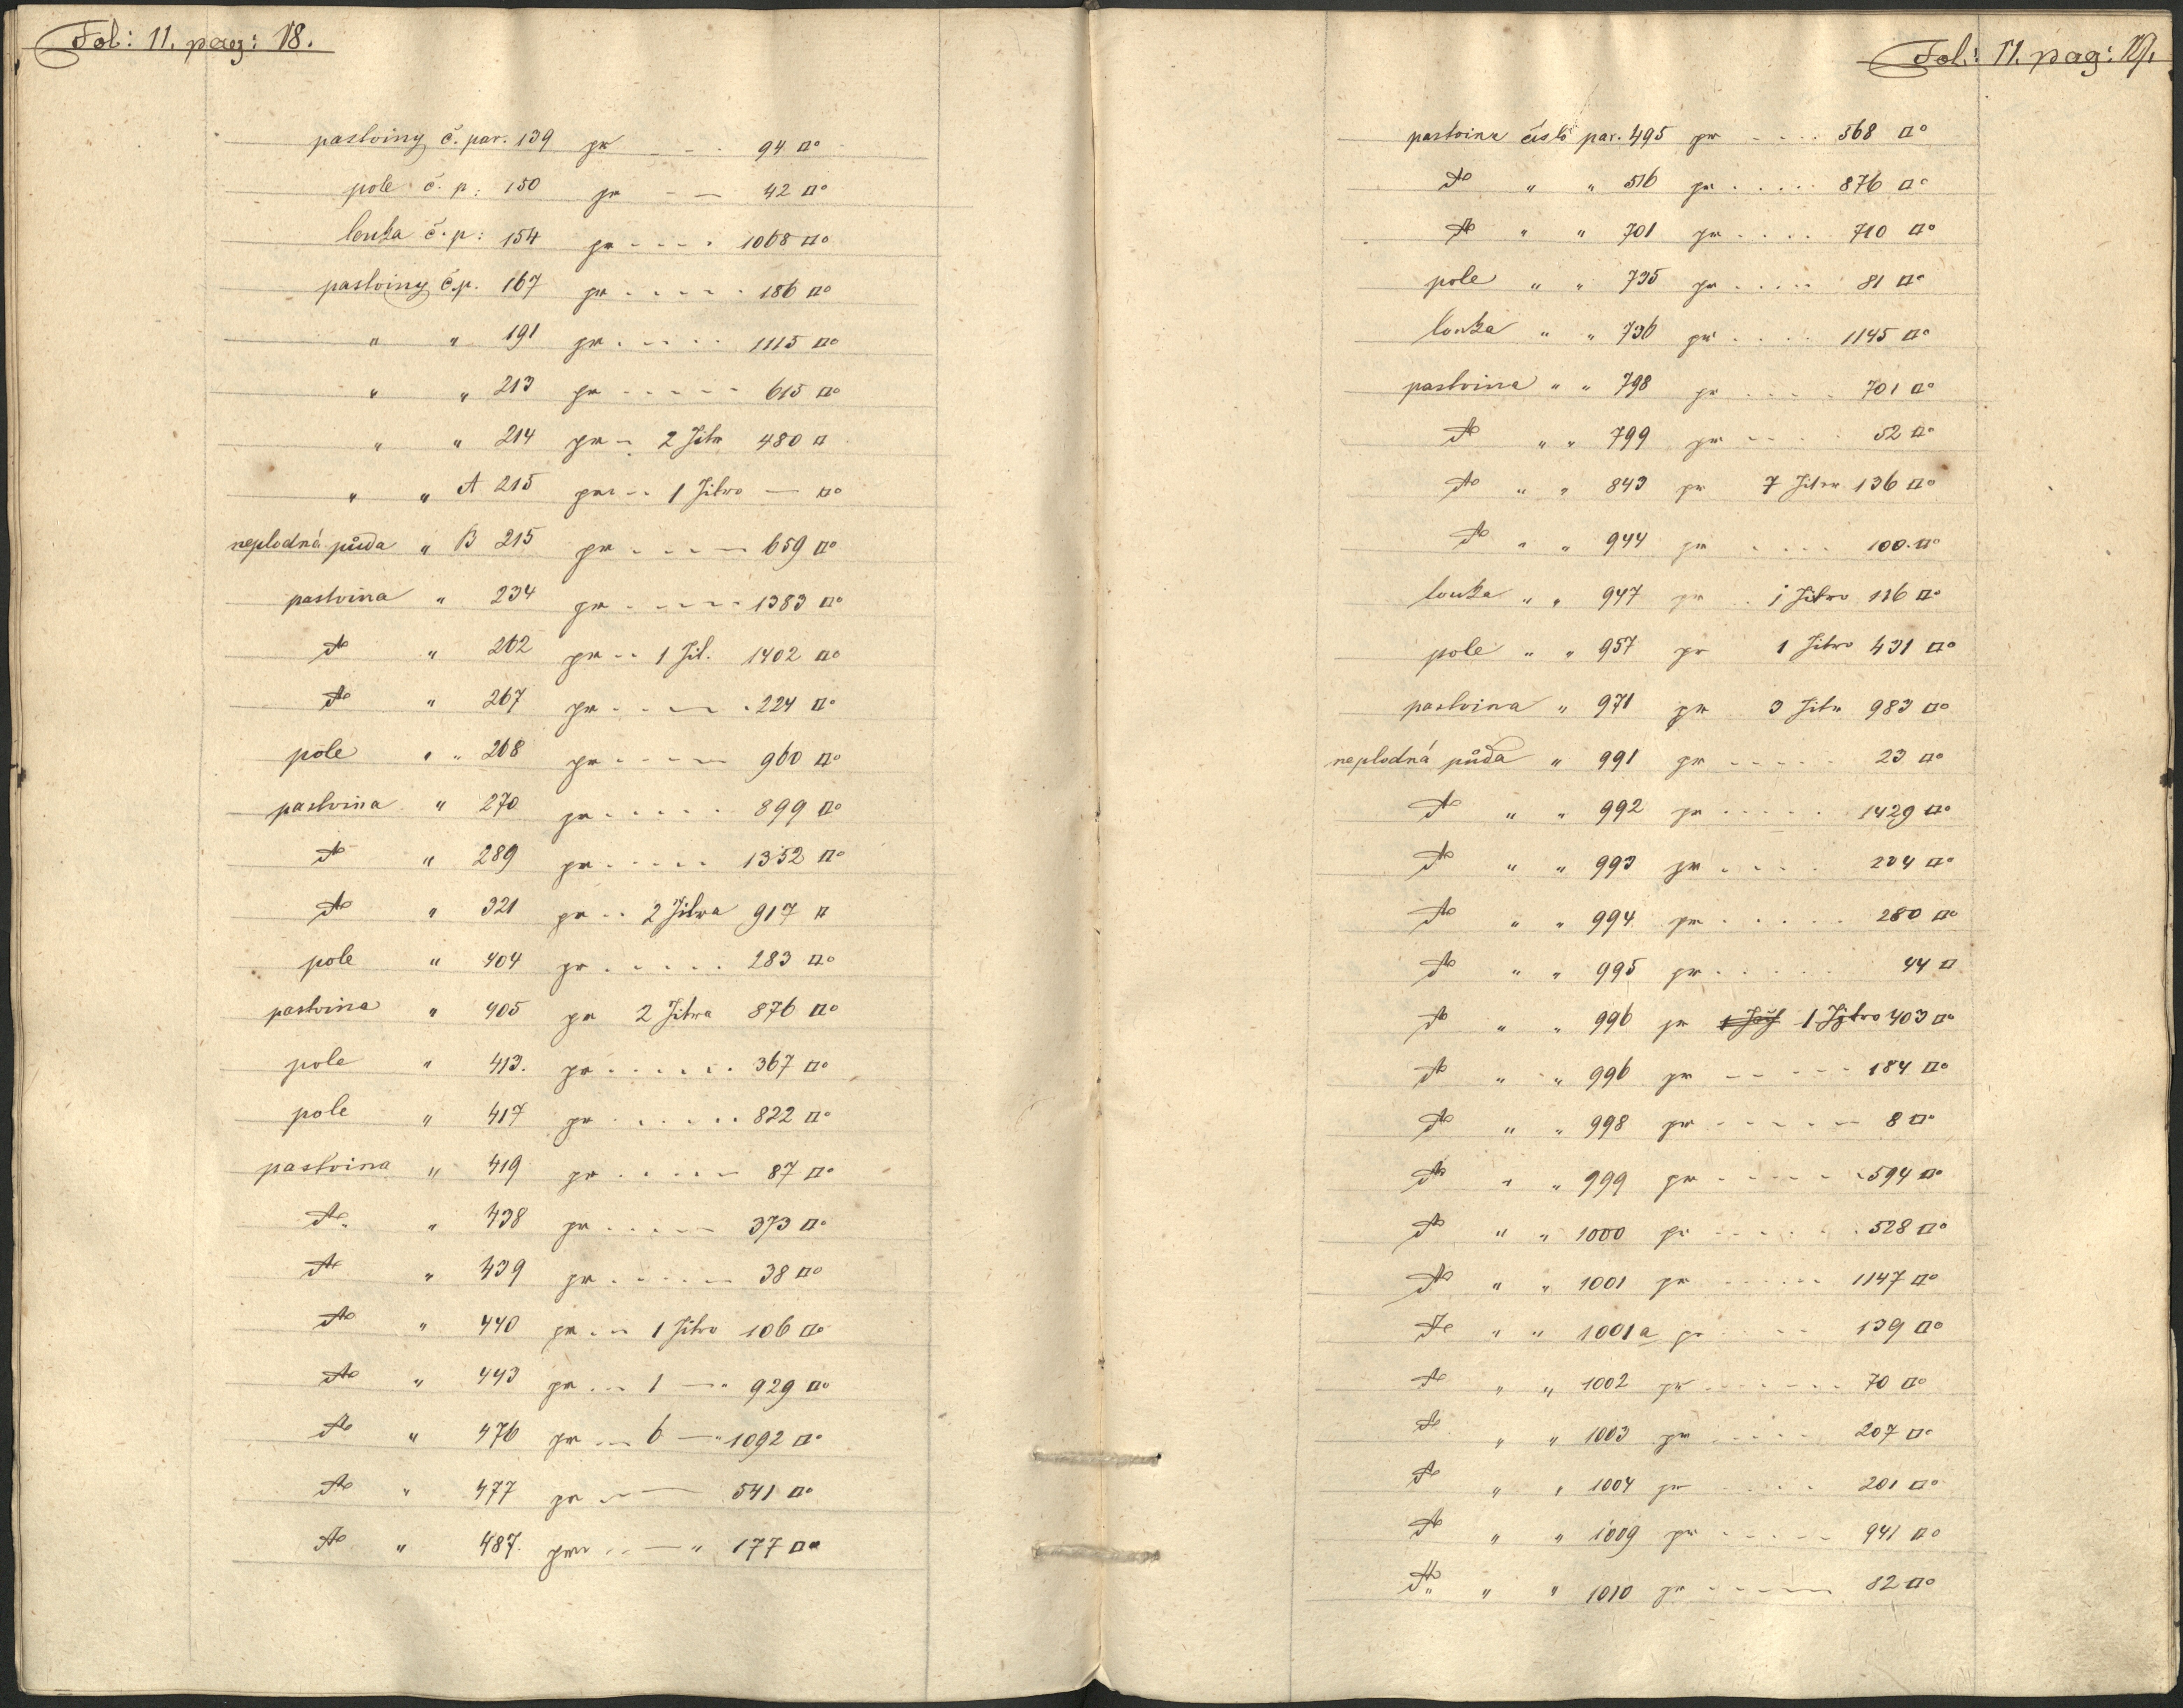 Fol: 11. pag: 18.
pastviny č. par. 139 pr - - . 94 □°
pole č. p: 150 pr - - 42 □°
louka č. p: 154 pr - - - . 1068 □°
pastviny č.p. 167 pr . - . - . 186 □°
" " 191 pr . - . . . 1115 □°
" " 213 pr - - - - - 615 □°
" " 214 pr - 2 Jitr 480 □
" " A 215 pr - - 1 Jitro — □°
neplodná půda " B 215 pr . - . - 659 □°
pastvina " 234 pr . - - - - 1383 □°
dto " 262 pr - - 1 Jit. 1402 □°
dto " 267 pr - - - - . 224 □°
pole " " 268 pr - - - - 960 □°
pastvina " 270 pr . . . . . 899 □°
dto " 289 pr . - . . . 1352 □°
dto " 321 pr . . 2 Jitra 917 □
pole " 404 pr . . . . . 283 □°
pastvina " 405 pr 2 Jitra 876 □°
pole " 413. pr . . . . . . 367 □°
pole " 417 pr . . . . . . 822 □°
pastvina " 419 pr . . . . - 87 □°
dto " 438 pr . . . . - 373 □°
dto " 439 pr . . . . - 38 □°
dto " 440 pr . - - 1 Jitro 106 □°
dto " 443 pr . . - 1 —" 929 □°
dto " 476 pr . . - 6 —" 1092 □°
dto " 477 pr - - — 541 □°
dto " 487. pr . . — " 177 □°
Fol: 11. pag: 19.
pastvina číslo par. 495 pr - - . . 568 □°
dto " " 516 pr . . . . . 876 □°
dto " " 701 pr . . . . 710 □°
pole " " 735 pr . . . . . 81 □°
louka " " 736 pr . . . . 1145 □°
pastvina " " 798 pr . . . . . 701 □°
dto " " 799 pr - - . . 52 □°
dto " " 843 pr 7 Jiter 136 □°
dto " " 944 pr . . . . 100. □°
louka " " 947 pr . . 1 Jitro 116 □°
pole " " 957 pr 1 Jitro 431 □°
pastvina " 971 pr 3 Jitr 983 □°
neplodná půda " 991 pr - - - - - 23 □°
dto " " 992 pr . . . . . 1429 □°
dto " " 993 pr . . . . 204 □°
dto " " 994 pr . . . . . 280 □°
dto " " 995 pr . . . . . 44 □
dto " " 996 pr 1 Jitro 403 □°
dto " " 996 pr - - - - - 184 □°
dto " " 998 pr - - - - - 8 □°
dto " " 999 pr - - - - - 594 □°
dto " " 1000 pr - - - . . 528 □°
dto " " 1001 pr - - - - - 1147 □°
dto " " 1001a pr . . - - 139 □°
dto " " 1002 pr - - - - - . 70 □°
dto " " 1003 pr . - - - . 207 □°
dto " " 1004 pr . . . . . 201 □°
dto " " 1009 pr . - . - - 941 □°
dto " " 1010 pr - - - - — 82 □°